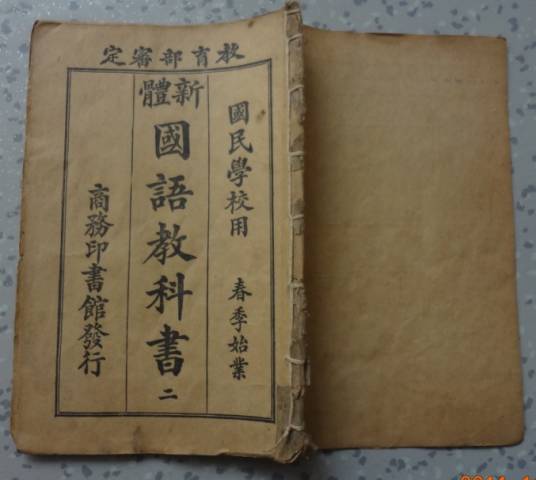 教育部審定
國民學校用
春季始業
新體
國語教科書
二
商務印書館發行